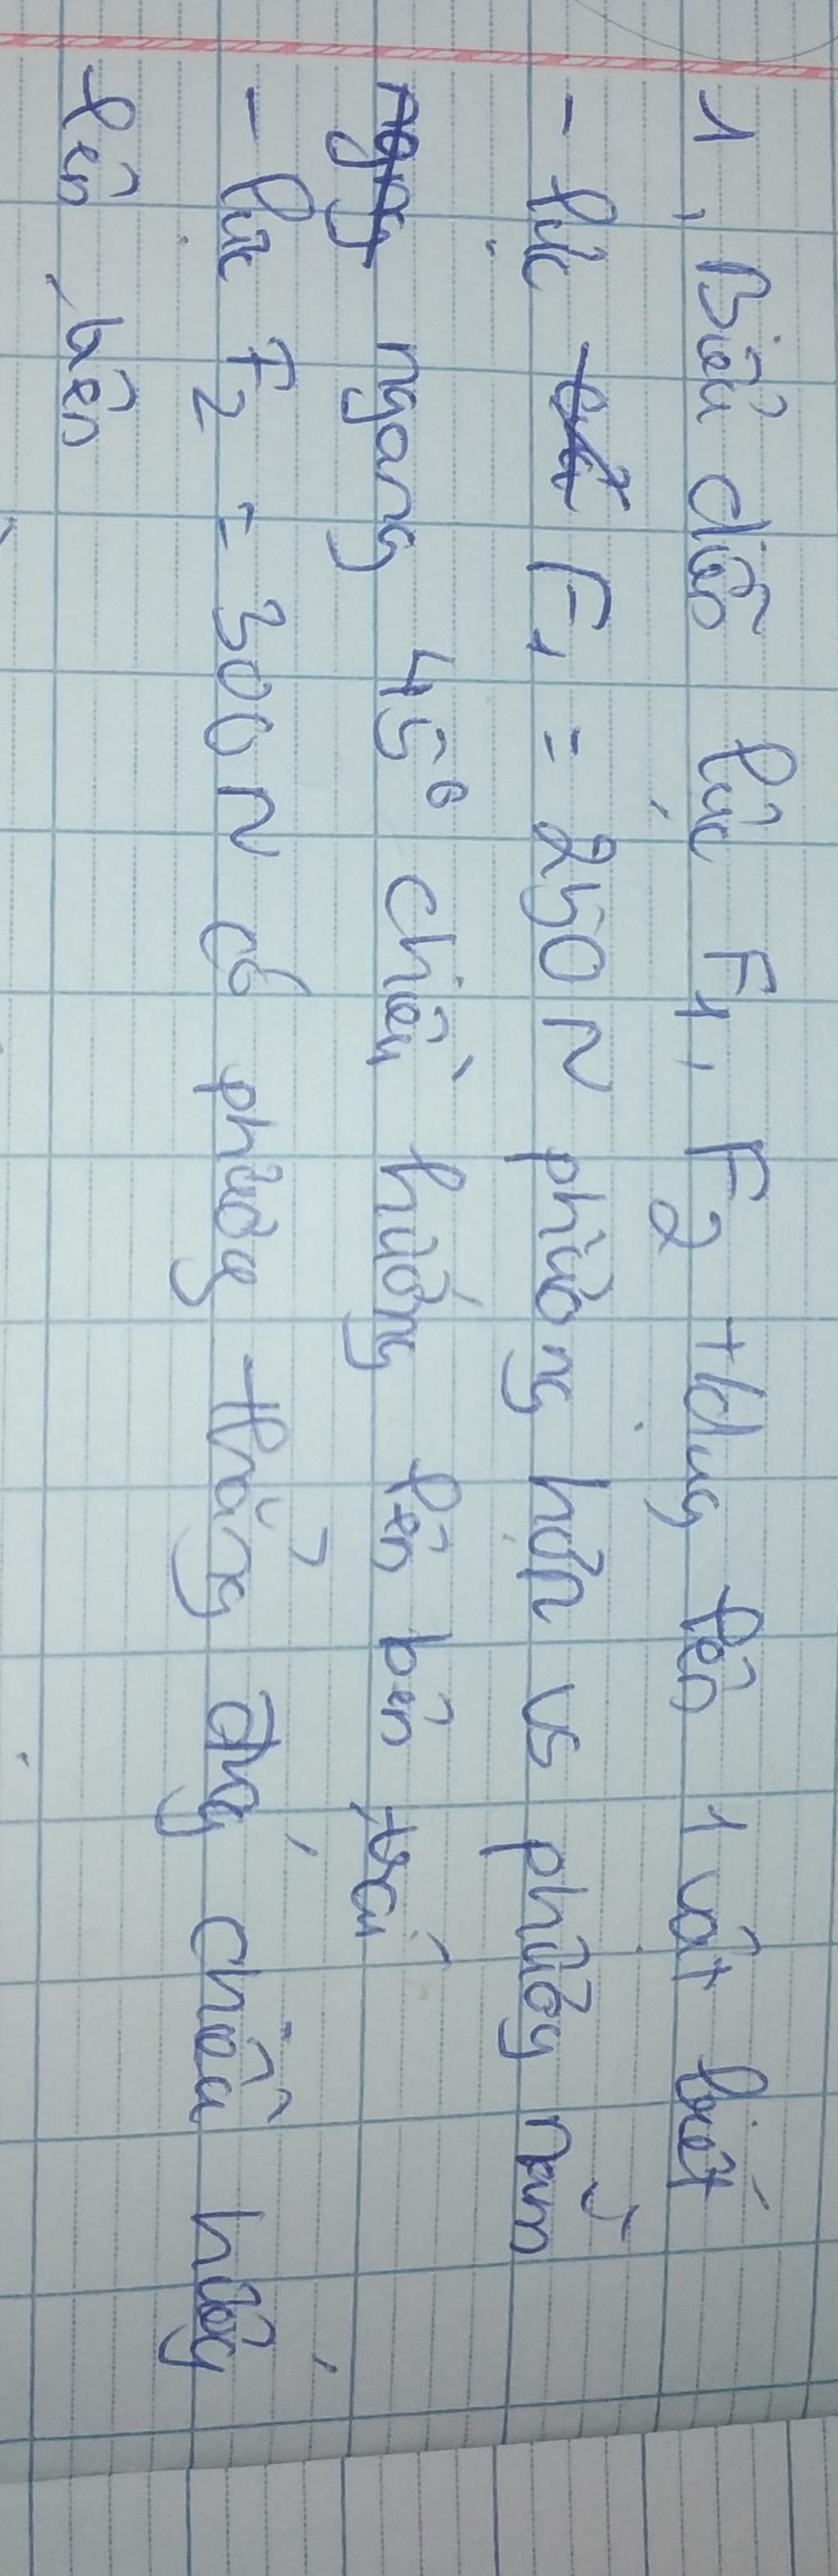 1, Biểu diễn lực F1, F2 tdụng lên 1 vật biết
- lực F1 = 250N phương hợp vs phương nằm
ngang 45° chiều hướng lên bên trái
- lực F2 = 300N có phương thẳng đứng chiều hướng
lên bên